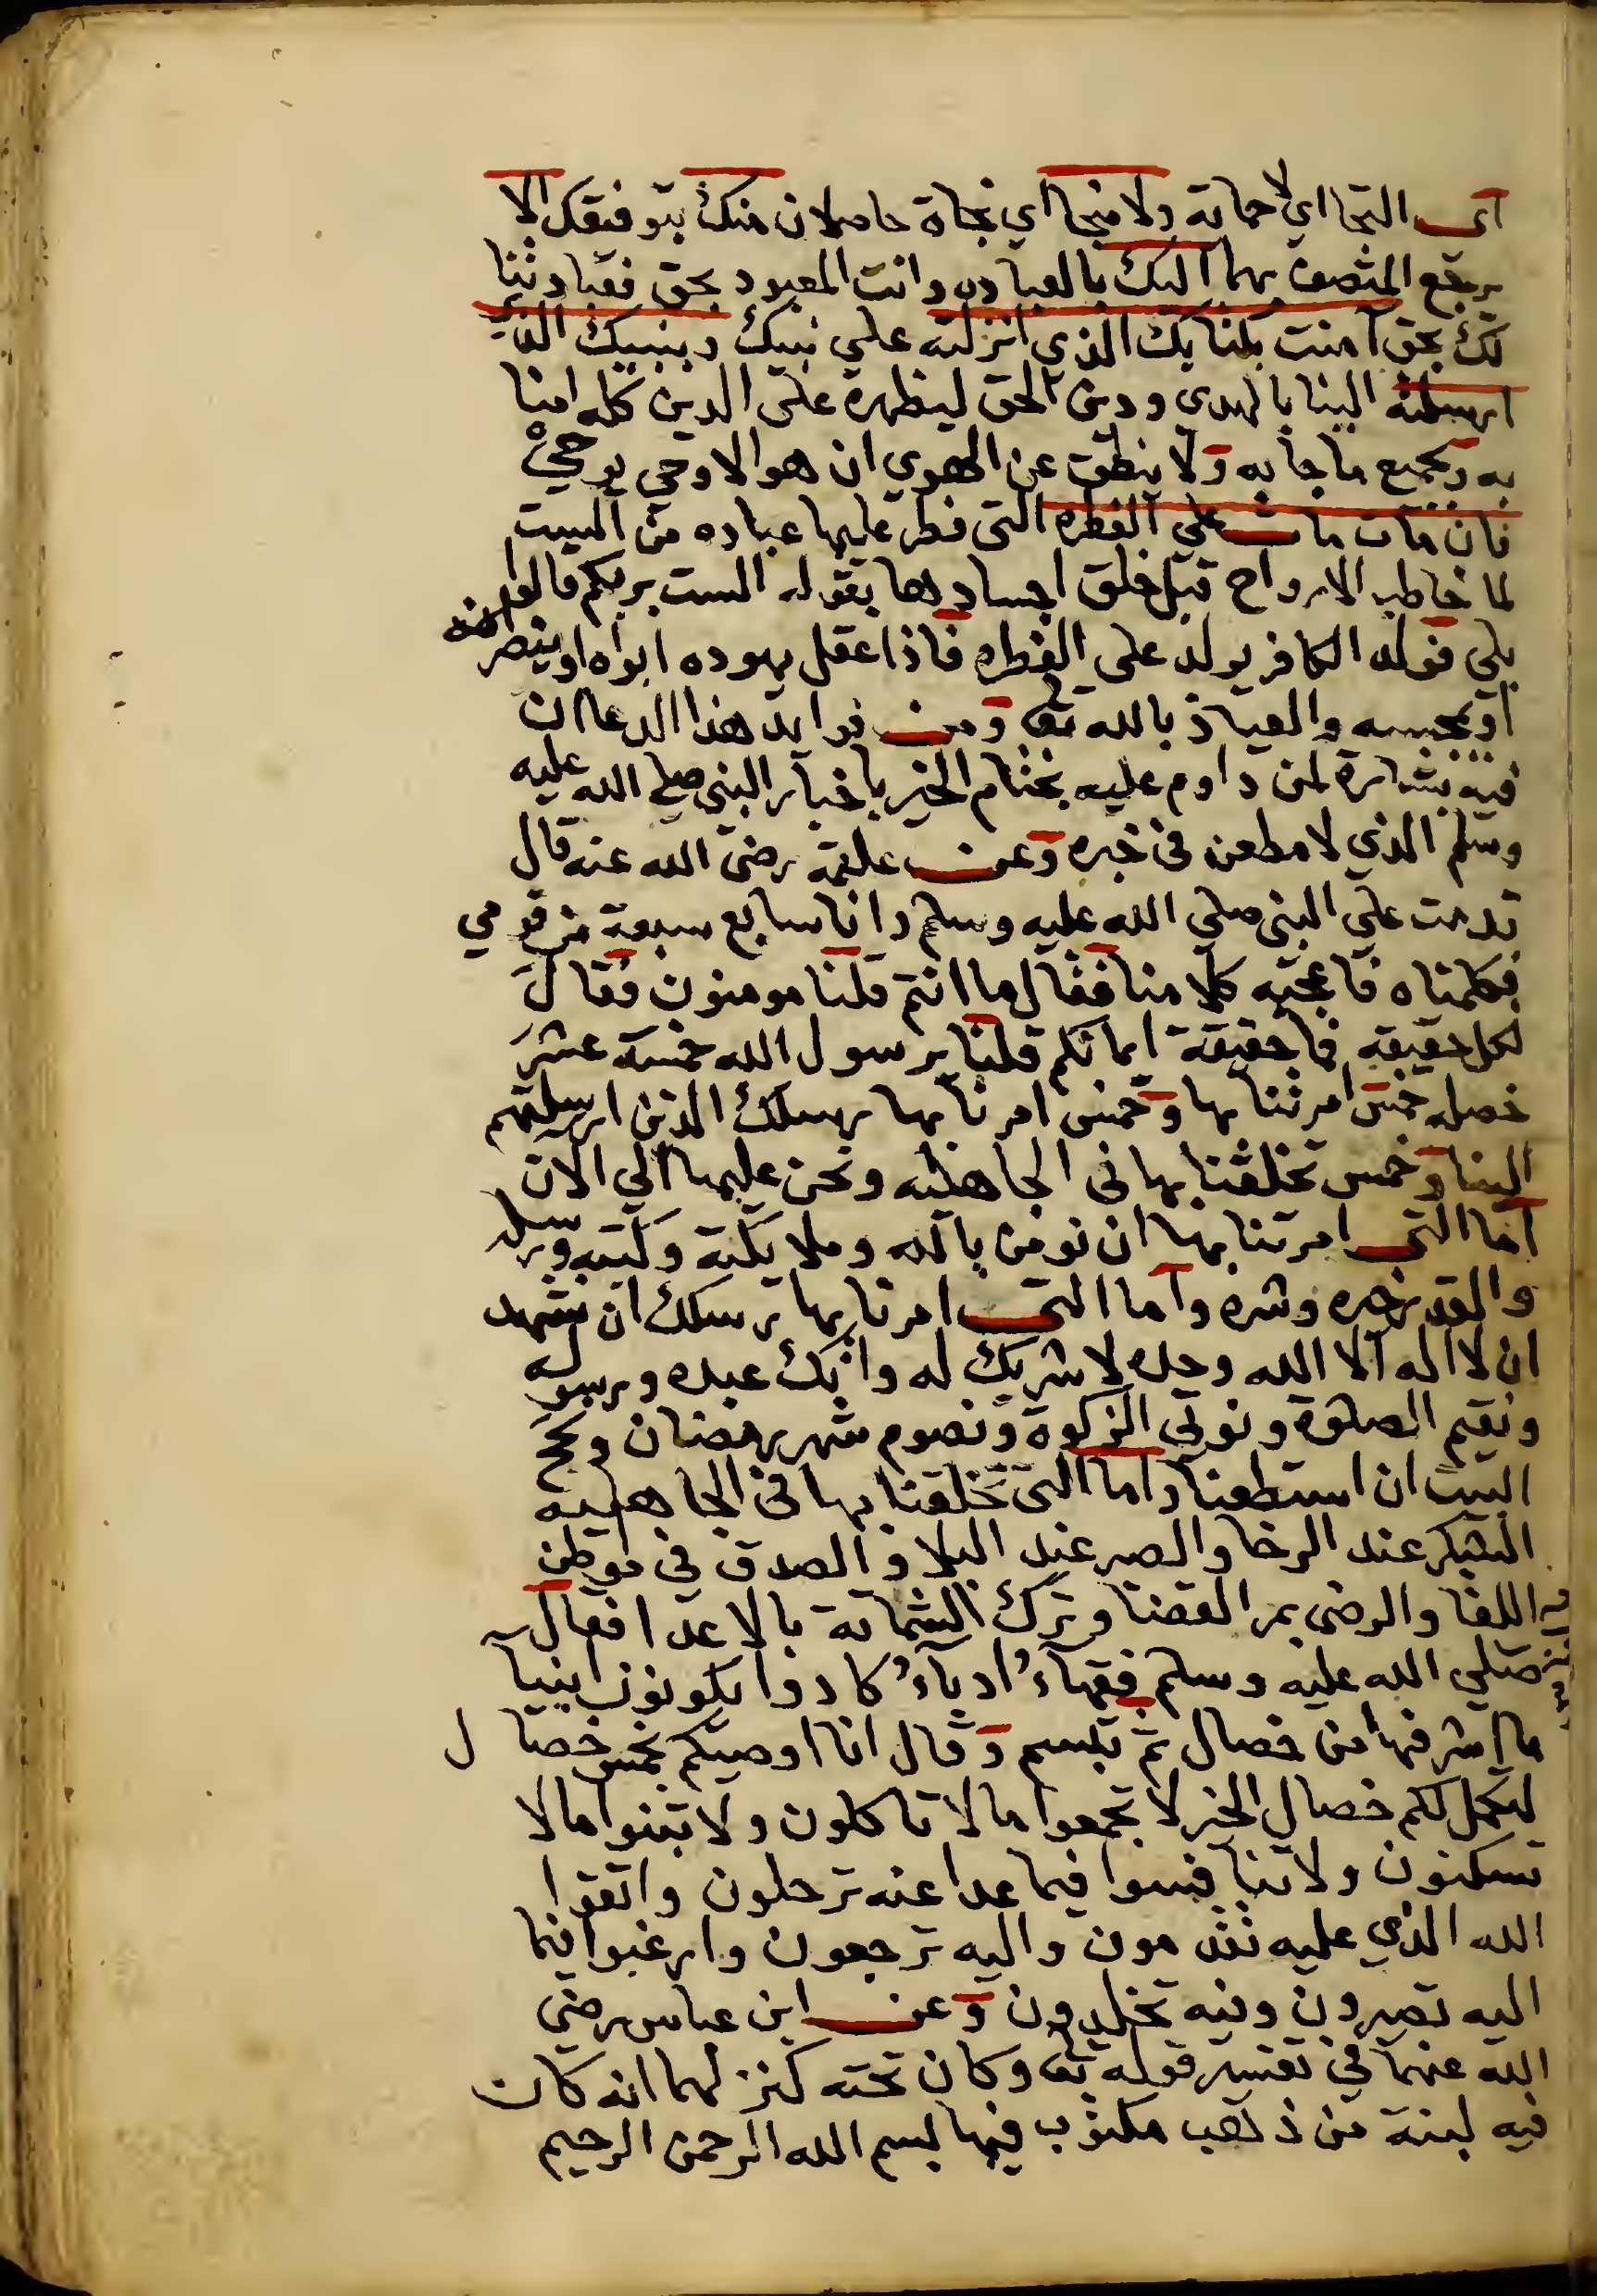 اى التجا اي لا حماية ولا منجا اي نجاة حاصلان منك بتوفيقك الا
يرتفع المتصف بهما اليك بالعبادة وانت المعبود بحق فعبادتنا
لك بحق آمنت بكتابك الذي انزلته علي نبيك وبنبيك الذي
ارسلته الينا بالهدي ودين الحق ليظهره على الدين كله امنا
به وبجميع ما جا به ولا ينطق عن الهوي ان هو الا وحي يوحي
فان مات مات علي الفطره التى فطر عليها عباده من الميت
لما خاطب الارواح قبل خلق اجسادها بقوله الست بربكم قالوا
بلي فولد الكافر يولد على الفطره فاذا عقل يهوده ابواه او ينصرانه
او يمجسه والعياذ بالله تعا ومن فوايد هذا الدعا ان
فيه بشارة لمن داوم عليه بختام الخير باخبار النبى صلى الله عليه
وسلم الذي لا مطعن فى خبره وعن علقمة رضى الله عنه قال
قدمت على النبى صلي الله عليه وسلم وانا سابع سبعة من قومي
فكلمناه فاعجبه كلامنا فقال ما انتم قلنا مومنون فقال
لكل حقيقة فما حقيقة ايمانكم قلنا يرسول الله خمسة عشر
خصله خمس امرتنا بها وخمس امرنا بها رسلك الذين ارسلتهم
الينا وخمس تخلقنا بها فى الجاهلية ونحن عليها الي الان
اما التى امرتنا بها ان نومن بالله وملايكته وكتبه ورسله
والقدر خيره وشره واما التى امرنا بها رسلك ان نشهد
ان لا اله الا الله وحده لا شريك له وانك عبده ورسوله
ونقيم الصلوة ونوتي الزكوة ونصوم شهر رمضان ونحج
البيت ان استطعنا واما التى تخلقنا بها فى الجاهلية
الشكر عند الرخا والصبر عند البلا والصدق في موطن
اللقا والرضى بمر القضا وترك الشماتة بالاعدا فقال
صلي الله عليه وسلم فقهاء ادباء كادوا يكونون انبيآ
ما اشرفها من خصال ثم تبسم وقال انا اوصيكم بخمس خصال
ليكمل لكم خصال الخير لا تجمعوا ما لا تاكلون ولا تبنوا ما لا
تسكنون ولا تنافسوا فيما غدا عنه ترحلون واتقوا
الله الذي عليه تقدمون واليه ترجعون وارغبوا فيما
اليه تصيرون وفيه تخلدون وعن ابن عباس رضي
الله عنهما في تفسير قوله تعا وكان تحته كنز لهما انه كان
فيه لبنة من ذهب مكتوب فيها بسم الله الرحمن الرحيم